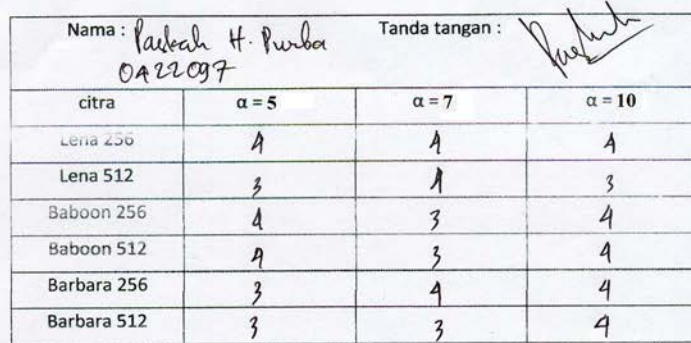 Nama : H. Purba Tanda tangan :
0422097
citra α = 5 α = 7 α = 10
Lena 256 4 4 4
Lena 512 3 4 3
Baboon 256 4 3 4
Baboon 512 4 3 4
Barbara 256 3 4 4
Barbara 512 3 3 4